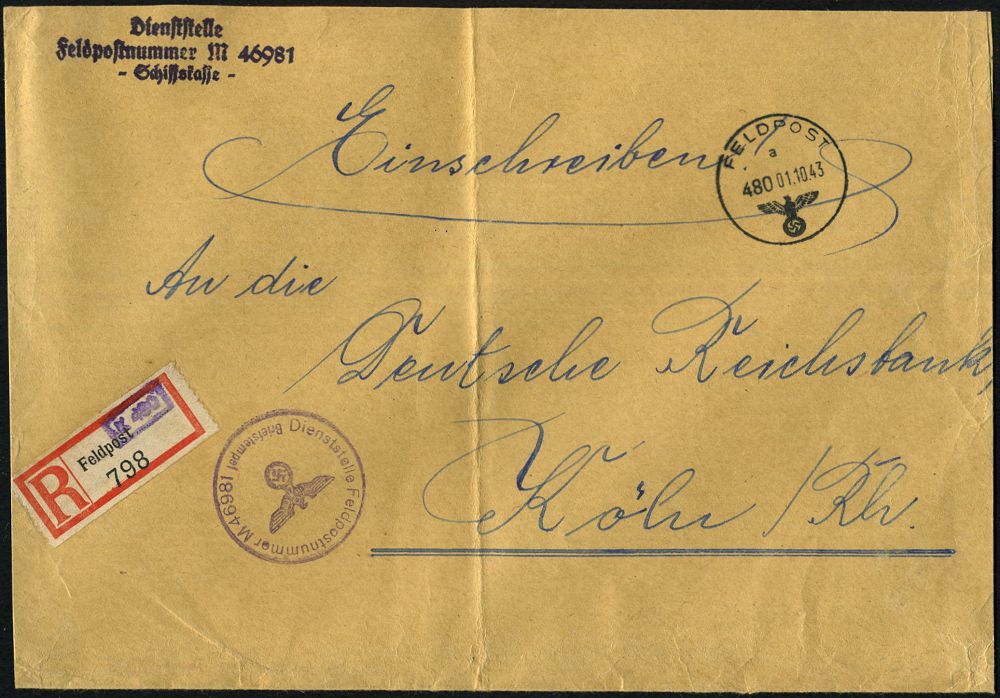 Dienststelle
Feldpostnummer M 46981
- Schiffskasse -
Einschreiben
FELDPOST
a
480 01.10.43
An die
Deutsche Reichsbank,
Köln / Rh.
R
Feldpost
798
Dienststelle Feldpostnummer M 46981
Briefstempel